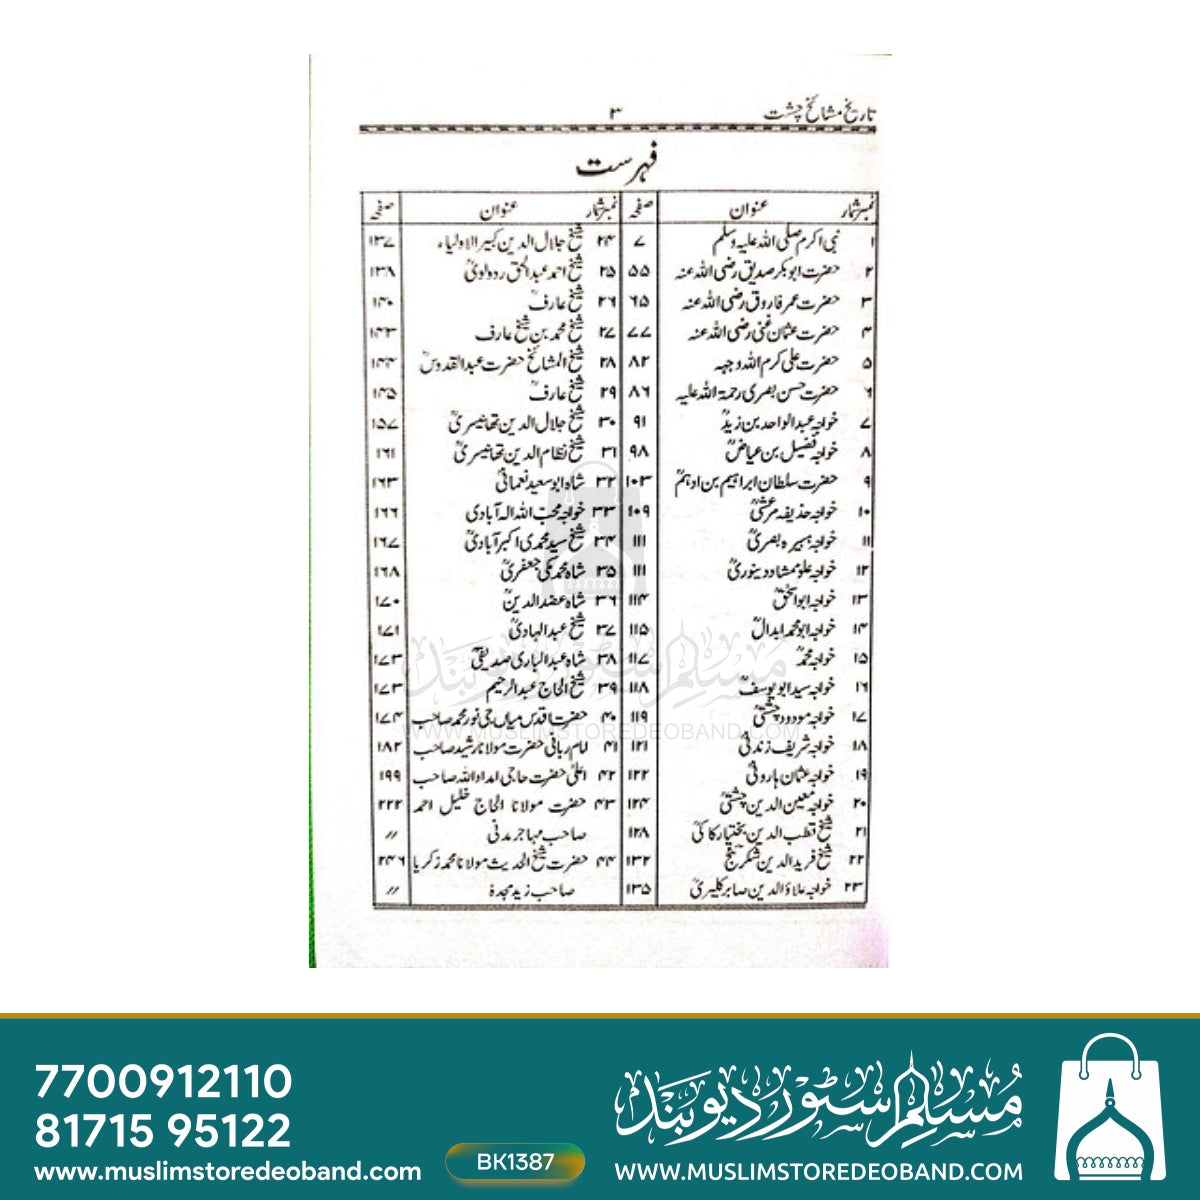 تاریخ مشائخ چشت ۳
فہرست
نمبرشمار عنوان صفحہ
۱ نبی اکرم صلی اللہ علیہ وسلم ۷
۲ حضرت ابوبکر صدیق رضی اللہ عنہ ۵۵
۳ حضرت عمر فاروق رضی اللہ عنہ ۶۵
۴ حضرت عثمان غنی رضی اللہ عنہ ۷۷
۵ حضرت علی کرم اللہ وجہہ ۸۲
۶ حضرت حسن بصری رحمۃ اللہ علیہ ۸۶
۷ خواجہ عبدالواحد بن زیدؒ ۹۱
۸ خواجہ فضیل بن عیاضؒ ۹۸
۹ حضرت سلطان ابراہیم بن ادہمؒ ۱۰۳
۱۰ خواجہ حذیفہ مرعشیؒ ۱۰۹
۱۱ خواجہ ہبیرہ بصریؒ ۱۱۱
۱۲ خواجہ علو ممشاد دینوریؒ ۱۱۱
۱۳ خواجہ ابواسحٰقؒ ۱۱۴
۱۴ خواجہ ابو محمد ابدالؒ ۱۱۵
۱۵ خواجہ محمدؒ ۱۱۷
۱۶ خواجہ سید ابو یوسفؒ ۱۱۸
۱۷ خواجہ مودود چشتیؒ ۱۱۹
۱۸ خواجہ شریف زندنیؒ ۱۲۱
۱۹ خواجہ عثمان ہارونیؒ ۱۲۲
۲۰ خواجہ معین الدین چشتیؒ ۱۲۴
۲۱ شیخ قطب الدین بختیار کاکیؒ ۱۲۸
۲۲ شیخ فرید الدین شکر گنجؒ ۱۳۲
۲۳ خواجہ علاؤ الدین صابر کلیریؒ ۱۳۵
نمبرشمار عنوان صفحہ
۲۴ شیخ جلال الدین کبیر الاولیاء ۱۳۷
۲۵ شیخ احمد عبدالحق ردولویؒ ۱۳۸
۲۶ شیخ عارفؒ ۱۴۰
۲۷ شیخ محمد بن شیخ عارف ۱۴۳
۲۸ شیخ المشائخ حضرت عبدالقدوسؒ ۱۴۴
۲۹ شیخ عارفؒ ۱۴۵
۳۰ شیخ جلال الدین تھانیسریؒ ۱۵۷
۳۱ شیخ نظام الدین تھانیسریؒ ۱۶۱
۳۲ شاہ ابو سعید نعمانیؒ ۱۶۳
۳۳ خواجہ محب اللہ الہ آبادی ۱۶۶
۳۴ شیخ سید محمدی اکبر آبادیؒ ۱۶۷
۳۵ شاہ محمد مکی جعفریؒ ۱۶۸
۳۶ شاہ عضد الدینؒ ۱۷۰
۳۷ شیخ عبدالہادیؒ ۱۷۱
۳۸ شاہ عبدالباری صدیقیؒ ۱۷۳
۳۹ شیخ الحاج عبدالرحیم ۱۷۳
۴۰ حضرت اقدس میاں جی نور محمد صاحب ۱۷۴
۴۱ امام ربانی حضرت مولانا رشید صاحب ۱۸۲
۴۲ اعلیٰ حضرت حاجی امداد اللہ صاحب ۱۹۹
۴۳ حضرت مولانا الحاج خلیل احمد ۲۲۲
صاحب مہاجر مدنی ″
۴۴ حضرت شیخ الحدیث مولانا محمد زکریا ۲۴۶
صاحب زید مجدہ ″
مسلم سٹور دیوبند
WWW.MUSLIMSTOREDEOBAND.COM
7700912110
81715 95122
www.muslimstoredeoband.com
BK1387
مسلم سٹور دیوبند
WWW.MUSLIMSTOREDEOBAND.COM